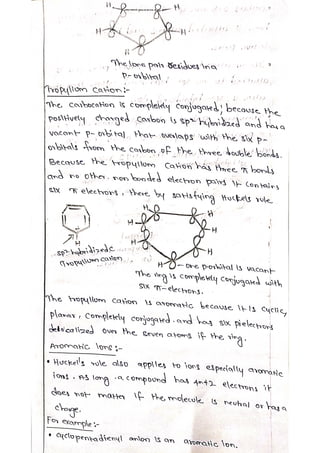 H
H
H
H
H
The lone pair residues in a
p-orbital
Tropyllom Cation:-
The carbocation is completely conjugated; because the
positively charged carbon is sp² hybridized and has a
vacant p-orbital that overlaps with the six p-
orbitals from the carbon of the three double bonds.
Because the tropyllom cation has three π bonds
and no other non bonded electron pairs it contains
six π electrons, there by satisfying Huckels rule.
H
H
H
H
H
H
H
H
sp² hybridized c
Tropyllium carbon
one porbital is vacant
The ring is completely conjugated with
six π-electrons.
The tropyllum cation is aromatic because it is cyclic,
planar, completely conjugated and has six pielectrons
delocalized over the seven atoms if the ring.
Aromatic Ions:-
• Huckel's rule also applies to ions especially aromatic
ions. As long a compound has 4n+2 electrons it
does not matter if the molecule is neutral or has a
charge.
For example:-
• cyclopentadienyl anion is an aromatic ion.